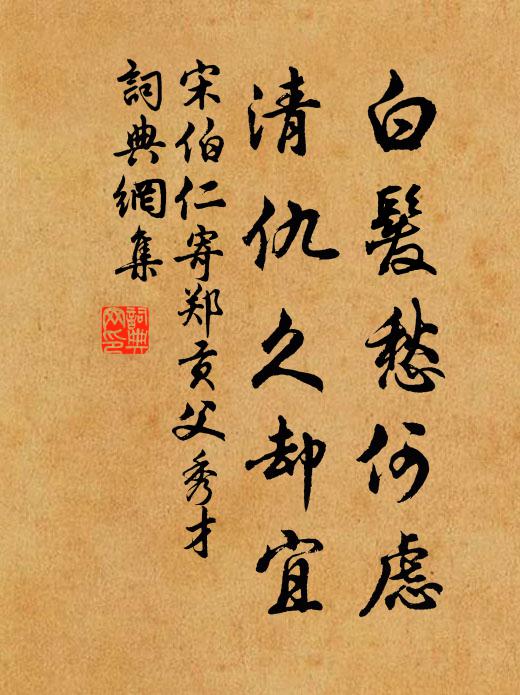 白髮愁何慮
清仇久却宜
宋伯仁寄郑贡父秀才
詞典網集
詞典
网印